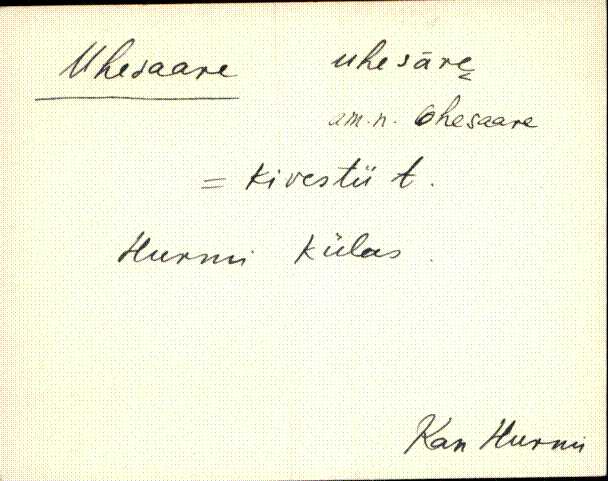 Uhesaare uhesāre
am.n. Ohesaare
= Kivestü t.
Hurmi külas.
Kan Hurmi